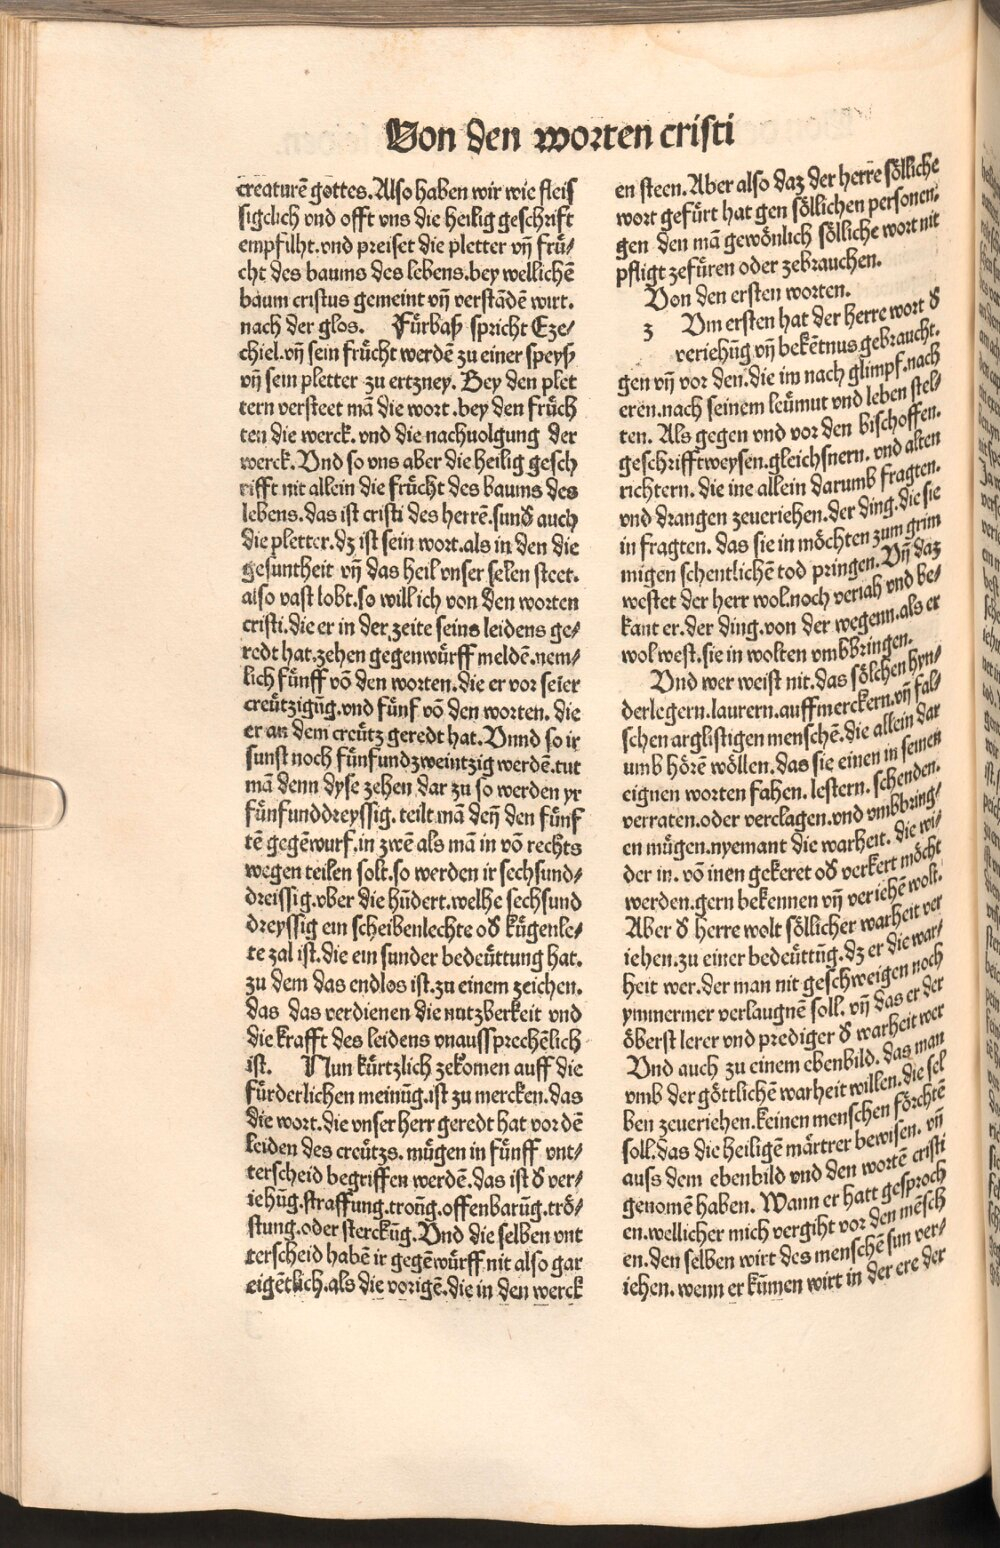 Von den worten cristi
creaturē gottes. Also haben wir wie fleis
sigclich vnd offt vns die heilig geschrift
empfilht. vnd preiset die pletter vñ frü⸗
cht des baums des lebens. bey wellichē
baum cristus gemeint vñ verstādē wirt.
nach der glos. Fürbaß spricht Eze⸗
chiel. vñ sein frücht werdē zu einer speyß
vñ sein pletter zu ertzney. Bey den plet
tern versteet mā die wort. bey den früch
ten die werck. vnd die nachuolgung der
werck. Vnd so vns aber die heilig gesch
rifft nit allein die frücht des baums des
lebens. das ist cristi des herrē. sunđ auch
die pletter. dz ist sein wort. als in den die
gesuntheit vñ das heil vnser selen steet.
also vast lobt. so will ich von den worten
cristi. die er in der zeite seins leidens ge⸗
redt hat. zehen gegenwürff meldē. nem⸗
lich fünff vō den worten. die er vor seier
creützigūg. vnd fünf vō den worten. die
er an dem creütz geredt hat. Vnnd so ir
sunst noch fünfundzweintzig werdē. tut
mā denn dyse zehen dar zu so werden yr
fünfunddreyssig. teilt mā deñ den fünf
tē gegēwurf. in zwē als mā in vō rechts
wegen teilen solt. so werden ir sechsund⸗
dreissig. vber die hūdert. welhe sechsund
dreyssig ein scheibenlechte ođ kügenle⸗
te zal ist. die ein sunder bedeüttung hat.
zu dem das endlos ist. zu einem zeichen.
das das verdienen die nutzberkeit vnd
die krafft des leidens vnaussprechēlich
ist. Nun kürtzlich zekomen auff die
fürderlichen meinūg. ist zu mercken. das
die wort. die vnser herr geredt hat vor dē
leiden des creützs. mügen in fünff vnt⸗
terscheid begriffen werdē. das ist đ ver⸗
iehūg. straffung. troūg. offenbarūg. trö⸗
stung. oder sterckūg. Vnd die selben vnt
terscheid habē ir gegēwürff. nit also gar
eigētlich. als die vorigē. die in den werck
en steen. Aber also daz der herre sölliche
wort gefürt hat gen söllichen personen.
gen den mā gewönlich sölliche wort nit
pfligt zefüren oder zebrauchen.
Von den ersten worten.
Z Vm ersten hat der herre wort đ
veriehūg vñ bekētnus gebraucht.
gen vñ vor den. die im nach glimpf. nach
eren. nach seinem leümut vnd leben stel⸗
ten. Als gegen vnd vor den bischoffen.
geschrifftweysen. gleichsnern. vnd alten
richtern. die ine allein darumb fragten.
vnd drangen zeueriehen. der ding. die sie
in fragten. das sie in möchten zum grim
migen schentlichē tod pringen. Vñ daz
westet der herr wol. noch veriah vnd be⸗
kant er. der ding. von der wegenn. als er
wol west. sie in wolten vmbbringen.
Vnd wer weist nit. das sölchen hyn⸗
derlegern. laurern. auffmerckern. vñ fal⸗
schen arglistigen menschē. die allein dar
umb hörē wöllen. das sie einen in seinen
eignen worten fahen. lestern. schenden.
verraten. oder verclagen. vnd vmbbring⸗
en mügen. nyemant die warheit. die wi⸗
der in. vō inen gekeret ođ verkert möcht
werden. gern bekennen vñ veriehē wolt.
Aber đ herre wolt söllicher warheit ver
iehen. zu einer bedeüttūg. dz er die war⸗
heit wer. der man nit geschweigen noch
ymmermer verlaugnē soll. vñ das er der
öberst lerer vnd prediger đ warheit wer
Vnd auch zu einem ebenbild. das man
vmb der göttlichē warheit willen. die sel
ben zeueriehen. keinen menschen förchtē
soll. das die heiligē märtrer bewisen. vñ
auss dem ebenbild vnd den wortē cristi
genomē haben. Wann er hatt gesproch
en. wellicher mich vergiht vor den mēsch
en. den selben wirt des menschē sun ver⸗
iehen. wenn er kūmen wirt in der ere der